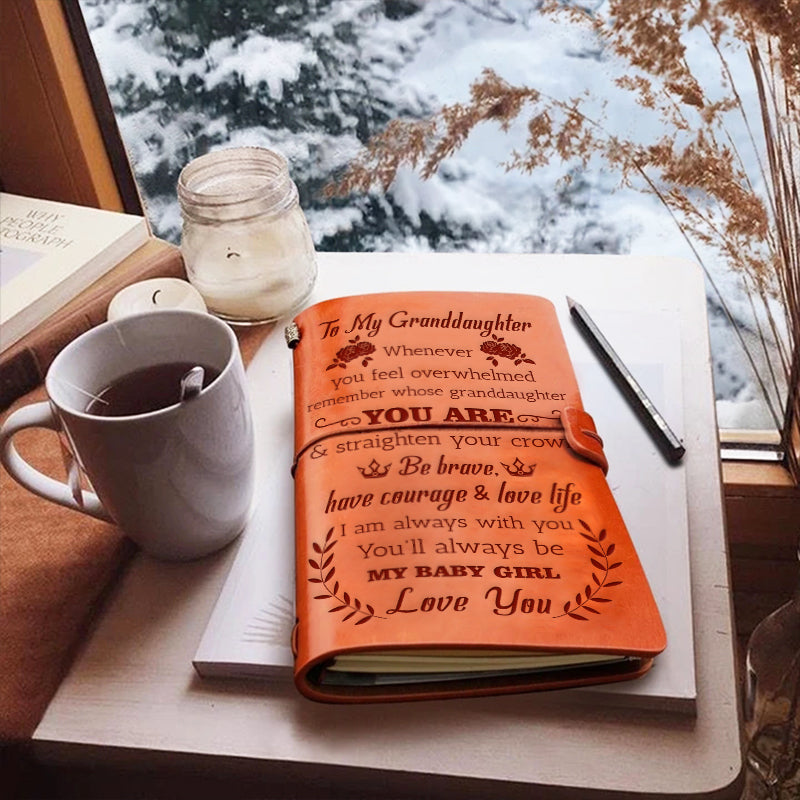 WHY
PEOPLE
PHOTOGRAPH
To My Granddaughter
Whenever
you feel overwhelmed
remember whose granddaughter
YOU ARE
& straighten your crown
Be brave,
have courage & love life
I am always with you
You'll always be
MY BABY GIRL
Love You